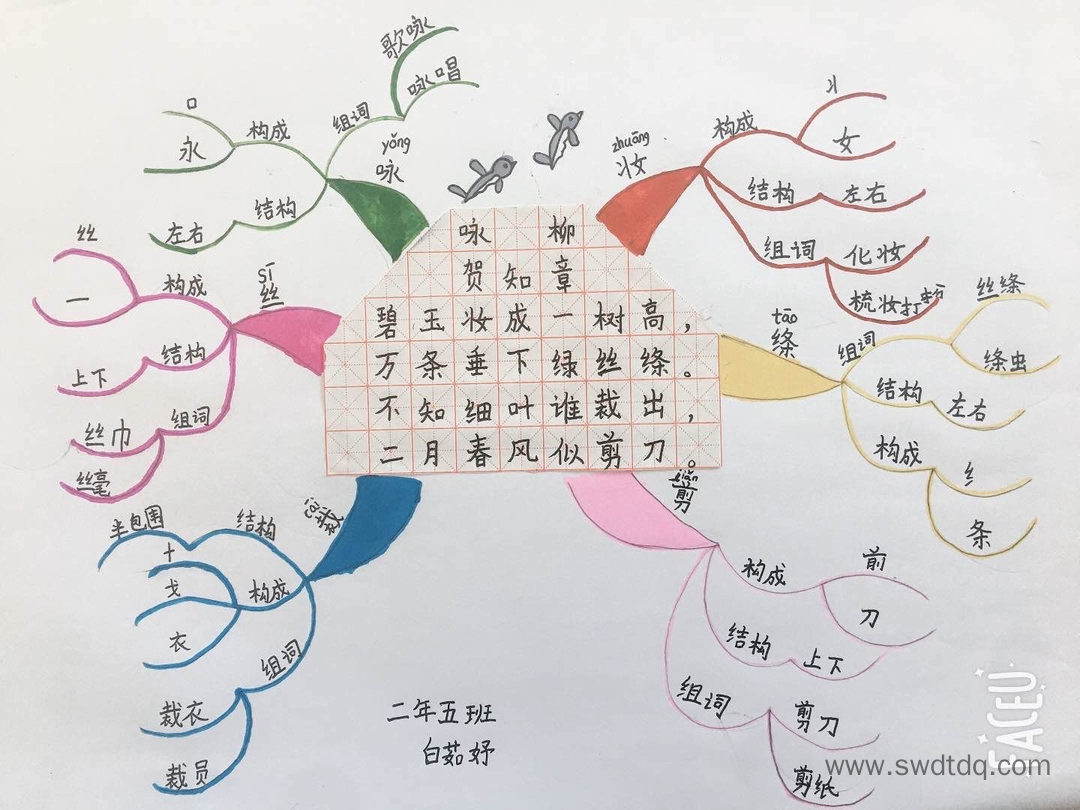 咏 柳
贺知章
碧玉妆成一树高，
万条垂下绿丝绦。
不知细叶谁裁出，
二月春风似剪刀。
zhuāng
妆
构成
丬
女
结构
左右
组词
化妆
梳妆打扮
tāo
绦
组词
丝绦
绦虫
结构
左右
构成
纟
条
jiǎn
剪
构成
前
刀
结构
上下
组词
剪刀
剪纸
cái
裁
结构
半包围
构成
十
戈
衣
组词
裁衣
裁员
sī
丝
构成
丝
一
结构
上下
组词
丝巾
丝毫
yǒng
咏
组词
歌咏
咏唱
构成
口
永
结构
左右
二年五班
白茹妤
FACEU
www.swdtdq.com